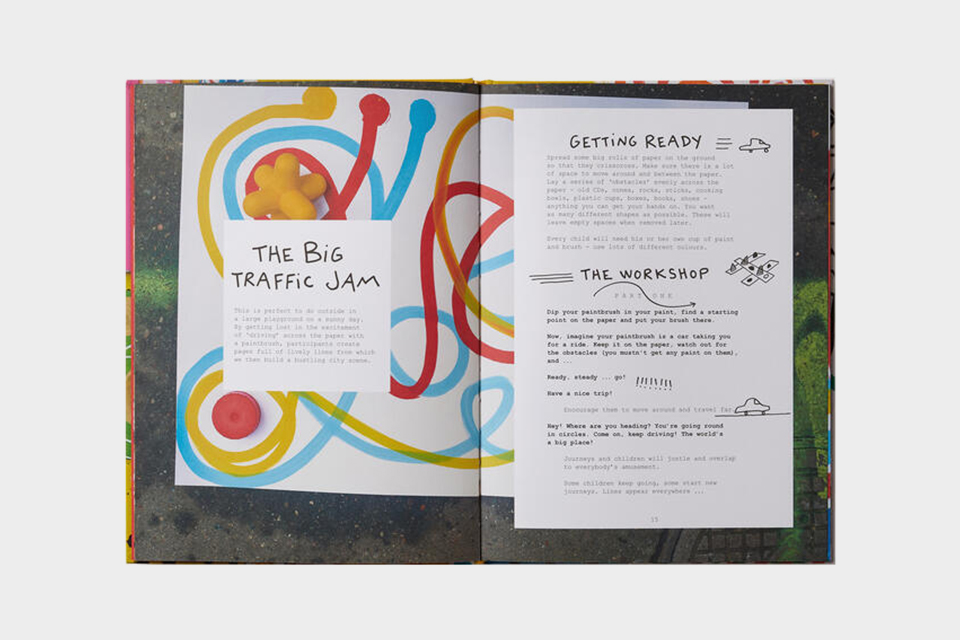 THE BIG
TRAFFIC JAM
This is perfect to do outside in
a large playground on a sunny day.
By getting lost in the excitement
of 'driving' across the paper with
a paintbrush, participants create
pages full of lively lines from which
we then build a bustling city scene.
GETTING READY
Spread some big rolls of paper on the ground
so that they crisscross. Make sure there is a lot
of space to move around and between the paper.
Lay a series of 'obstacles' evenly across the
paper – old CDs, cones, rocks, sticks, cooking
bowls, plastic cups, boxes, books, shoes –
anything you can get your hands on. You want
as many different shapes as possible. These will
leave empty spaces when removed later.
Every child will need his or her own cup of paint
and brush – use lots of different colours.
THE WORKSHOP
PART ONE
Dip your paintbrush in your paint, find a starting
point on the paper and put your brush there.
Now, imagine your paintbrush is a car taking you
for a ride. Keep it on the paper, watch out for
the obstacles (you mustn't get any paint on them),
and ...
Ready, steady ... go!
Have a nice trip!
Encourage them to move around and travel far.
Hey! Where are you heading? You're going round
in circles. Come on, keep driving! The world's
a big place!
Journeys and children will jostle and overlap
to everybody's amusement.
Some children keep going, some start new
journeys. Lines appear everywhere ...